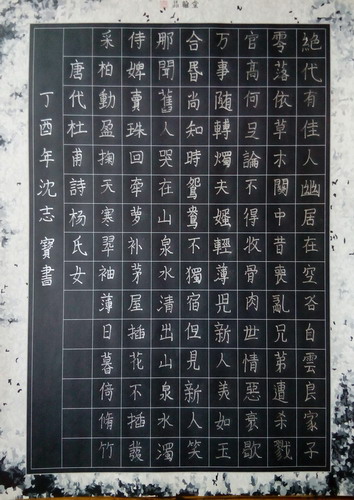 品翰堂
絕代有佳人幽居在空谷自雲良家子
零落依草木關中昔喪亂兄弟遭杀戮
官高何足論不得收骨肉世情惡衰歇
万事随轉燭夫婿輕薄兒新人美如玉
合昏尚知時鴛鴦不獨宿但見新人笑
那聞舊人哭在山泉水清出山泉水濁
侍婢賣珠回牽蘿补茅屋插花不插髮
采柏動盈掬天寒翠袖薄日暮倚脩竹
唐代杜甫詩杨氏女
丁酉年沈志寶書